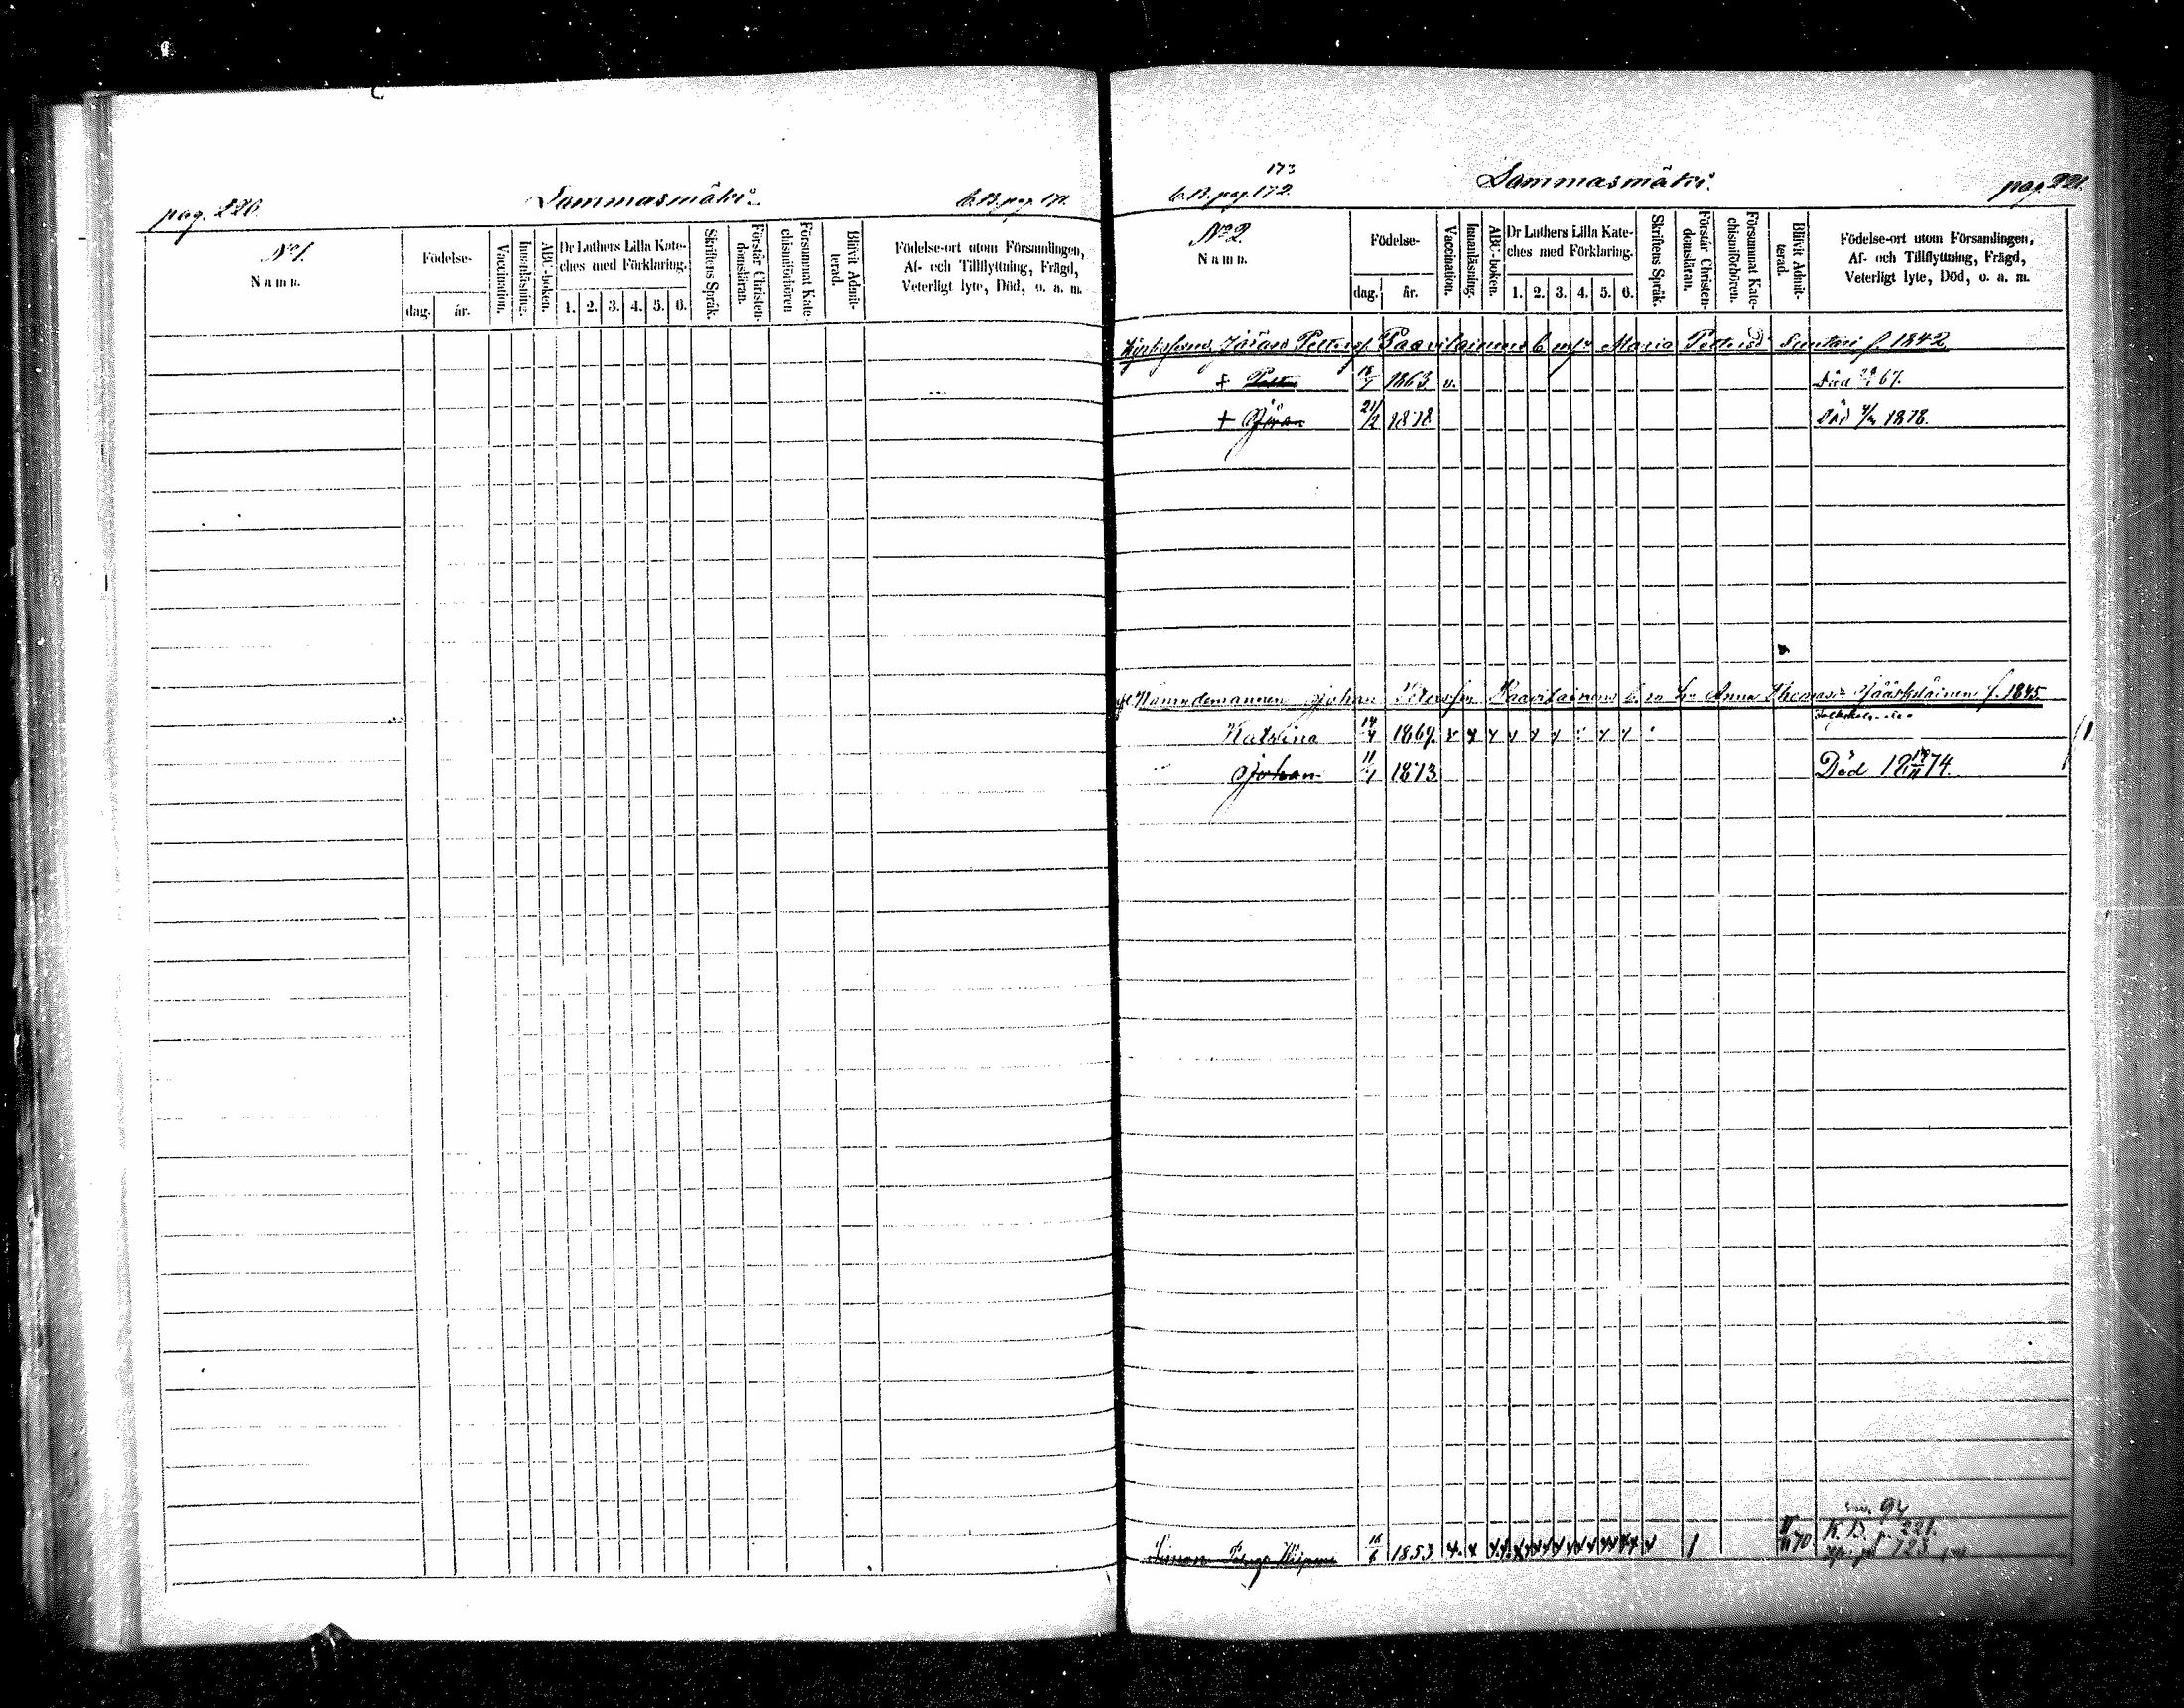 pag. 220.
Sammasmäki
C.B. pag. 171.
No 1.
Namn.
Födelse-
dag.
år.
Vaccination.
Innanläsning.
ABC-boken.
Dr Luthers Lilla Kate-
ches med Förklaring.
1. 2. 3. 4. 5. 6.
Skriftens Språk.
Förstår Christen-
domsläran.
Försummat Kate-
chismiförhören
Blifvit Admit-
terad.
Födelse-ort utom Församlingen,
Af- och Tillflyttning, Frägd,
Veterligt lyte, Död, o. a. m.
173
C.B. pag. 172.
Sammasmäki.
pag. 221.
No 2.
Namn.
Födelse-
dag.
år.
Vaccination.
Innanläsning.
ABC-boken.
Dr Luthers Lilla Kate-
ches med Förklaring.
1. 2. 3. 4. 5. 6.
Skriftens Språk.
Förstår Christen-
domsläran.
Försummat Kate-
chismiförhören.
Blifvit Admit-
terad.
Födelse-ort utom Församlingen,
Af- och Tillflyttning, Frägd,
Veterligt lyte, Död, o. a. m.
Jöran Petters. Paavilainens b. m. Maria Pettersd. f. 1842
+ Petter 1863 v. Död 67.
+ Jöran 21/2 1878 Död 1878.
Nämndemannen Johan Peterss. Paavilainens b. m. Anna Thomasd. Jääskeläinen f. 1845.
Katrina 14/4 1867. x x x x x x x x
Johan 11/1 1873 Död 74.
Simon 1853 x x 1 70
94
K.B. 221.
723